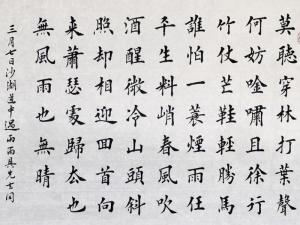 莫聽穿林打葉聲
何妨唫嘯且徐行
竹杖芒鞋輕勝馬
誰怕一蓑煙雨任
平生料峭春風吹
酒醒微冷山頭斜
照却相迎回首向
來蕭瑟處歸厺也
無風雨也無晴
三月七日沙湖道中遇雨雨具先去同